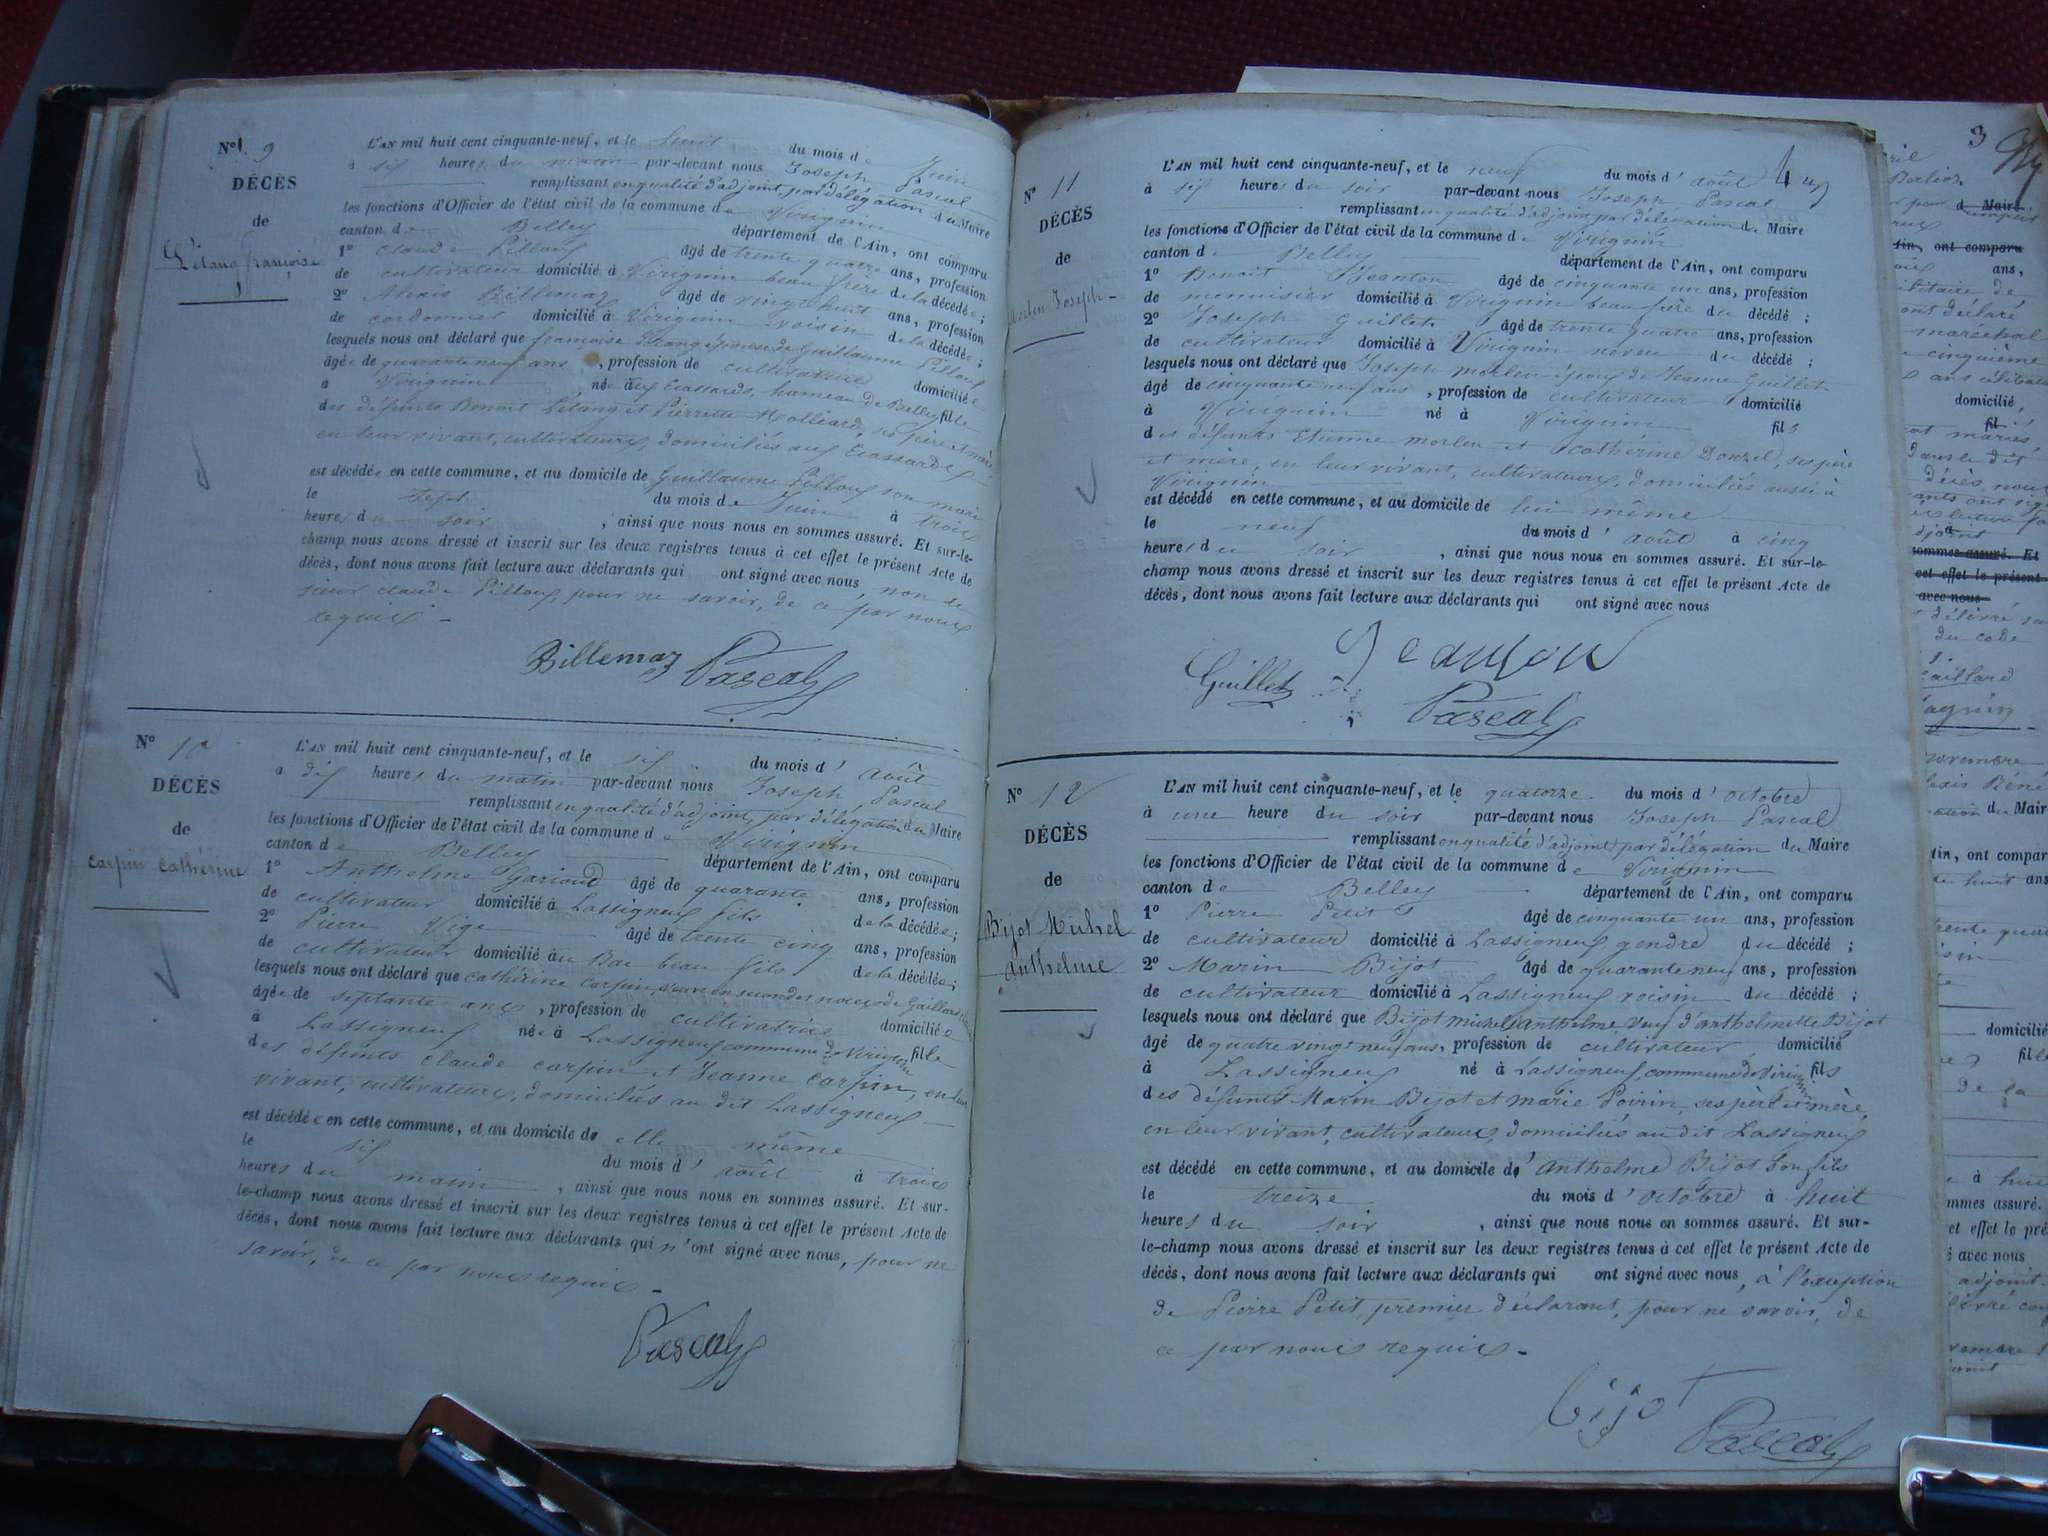 N° 9
DÉCÈS
de
Létang françoise
L'AN mil huit cent cinquante-neuf, et le huit du mois de Juin
à six heures du matin par-devant nous Joseph Pascal
remplissant en qualité d'adjoint, par délégation du Maire
les fonctions d'Officier de l'état civil de la commune de Virignin
canton de Belley département de l'Ain, ont comparu
1° Claude Pilloux âgé de trente quatre ans, profession
de cultivateur domicilié à Virignin beau frère de la décédée;
2° Alexis Billemaz âgé de vingt huit ans, profession
de cordonnier domicilié à Virignin voisin de la décédée;
lesquels nous ont déclaré que françoise Létang épouse de Guillaume Pilloux
âgée de quarante neuf ans, profession de cultivatrice domiciliée
à Virignin née aux Ecassards, hameau de Belley fille
des défunts Benoit Létang et Pierrette Molliard, ses père et mère
en leur vivant, cultivateurs, domiciliés aux Ecassards
est décédée en cette commune, et au domicile de Guillaume Pilloux son mari
le sept du mois de Juin à trois
heures du soir, ainsi que nous nous en sommes assuré. Et sur-le-
champ nous avons dressé et inscrit sur les deux registres tenus à cet effet le présent Acte de
décès, dont nous avons fait lecture aux déclarants qui ont signé avec nous, non le
sieur claude Pilloux, pour ne savoir, de ce par nous
requis -
Billemaz Pascal
N° 10
DÉCÈS
de
Carpin Cathérine
L'AN mil huit cent cinquante-neuf, et le six du mois d'août
à dix heures du matin par-devant nous Joseph Pascal
remplissant en qualité d'adjoint, par délégation du Maire
les fonctions d'Officier de l'état civil de la commune de Virignin
canton de Belley département de l'Ain, ont comparu
1° Anthelme Garioud âgé de quarante ans, profession
de cultivateur domicilié à Lassigneux fils de la décédée;
2° Pierre Vige âgé de trente cinq ans, profession
de cultivateur domicilié au Bac beau fils de la décédée;
lesquels nous ont déclaré que cathérine Carpin, veuve en secondes noces de Gaillard
âgée de septante ans, profession de cultivatrice domiciliée
à Lassigneux née à Lassigneux commune de Virignin fille
des défunts claude Carpin et Jeanne Carpin, en leur
vivant, cultivateurs, domiciliés au dit Lassigneux
est décédée en cette commune, et au domicile de elle même
le six du mois d'août à trois
heures du matin, ainsi que nous nous en sommes assuré. Et sur-
le-champ nous avons dressé et inscrit sur les deux registres tenus à cet effet le présent Acte de
décès, dont nous avons fait lecture aux déclarants qui n'ont signé avec nous, pour ne
savoir, de ce par nous requis -
Pascal
N° 11
DÉCÈS
de
Morlen Joseph
L'AN mil huit cent cinquante-neuf, et le neuf du mois d'août
à six heures du soir par-devant nous Joseph Pascal
remplissant en qualité d'adjoint par délégation du Maire
les fonctions d'Officier de l'état civil de la commune de Virignin
canton de Belley département de l'Ain, ont comparu
1° Benoit Jeanton âgé de cinquante un ans, profession
de menuisier domicilié à Virignin beau frère du décédé;
2° Joseph Guillet âgé de trente quatre ans, profession
de cultivateur domicilié à Virignin neveu du décédé;
lesquels nous ont déclaré que Joseph morlen époux de Jeanne Guillet
âgé de cinquante neuf ans, profession de cultivateur domicilié
à Virignin né à Virignin fils
des défunts Etienne morlen et Cathérine Donzel, ses père
et mère, en leur vivant, cultivateurs, domiciliés aussi à
Virignin
est décédé en cette commune, et au domicile de lui même
le neuf du mois d'août à cinq
heures du soir, ainsi que nous nous en sommes assuré. Et sur-le-
champ nous avons dressé et inscrit sur les deux registres tenus à cet effet le présent Acte de
décès, dont nous avons fait lecture aux déclarants qui ont signé avec nous
Guillet Jeanton
Pascal
N° 12
DÉCÈS
de
Bijot Michel
Anthelme
L'AN mil huit cent cinquante-neuf, et le quatorze du mois d'octobre
à une heure du soir par-devant nous Joseph Pascal
remplissant en qualité d'adjoint, par délégation du Maire
les fonctions d'Officier de l'état civil de la commune de Virignin
canton de Belley département de l'Ain, ont comparu
1° Pierre Petit âgé de cinquante un ans, profession
de cultivateur domicilié à Lassigneux gendre du décédé;
2° Marin Bijot âgé de quarante neuf ans, profession
de cultivateur domicilié à Lassigneux voisin du décédé;
lesquels nous ont déclaré que Bijot michel anthelme, veuf d'anthelmette Bijot
âgé de quatre vingt neuf ans, profession de cultivateur domicilié
à Lassigneux né à Lassigneux, commune de Virignin fils
des défunts Marin Bijot et marie Poirin, ses père et mère,
en leur vivant, cultivateurs, domiciliés au dit Lassigneux
est décédé en cette commune, et au domicile d'anthelme Bijot son fils
le treize du mois d'octobre à huit
heures du soir, ainsi que nous nous en sommes assuré. Et sur-
le-champ nous avons dressé et inscrit sur les deux registres tenus à cet effet le présent Acte de
décès, dont nous avons fait lecture aux déclarants qui ont signé avec nous, à l'exception
de Pierre Petit, premier déclarant, pour ne savoir, de
ce par nous requis -
bijot
Pascal
3
Maire
ont comparu
ans,
ont déclaré
maréchal
cinquième
domicilié,
fil
dans le dit
décès, nous
sommes assuré. Et
cet effet le présent
avec nous
délivré
du code
novembre
du Mair
ont compar
huit ans
domicilié
fille
de la
mmes assuré.
et effet le pré
avec nous
adjoint.